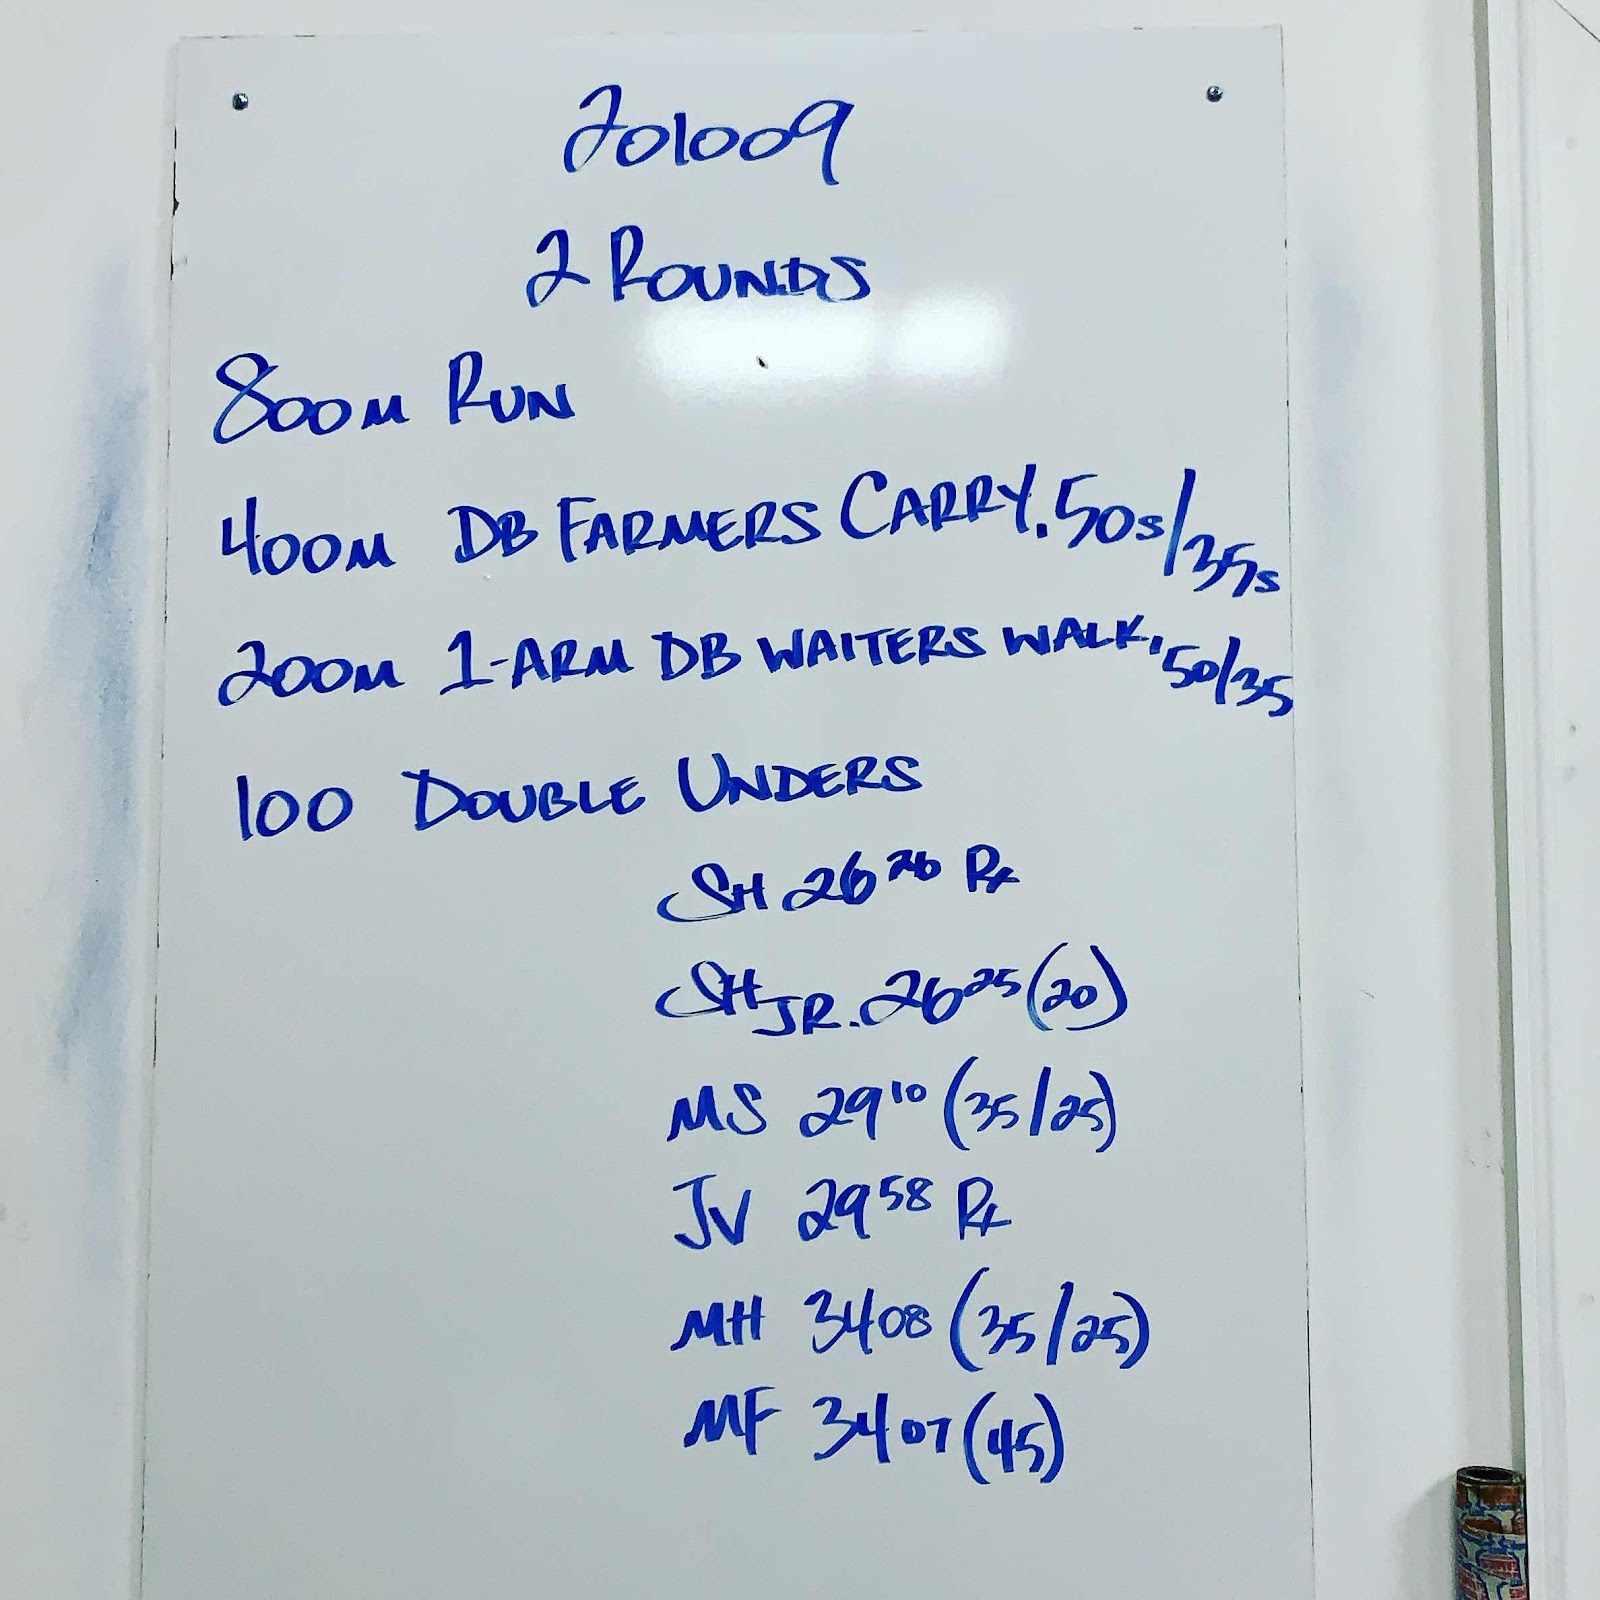 201009
2 ROUNDS
800M RUN
400M DB FARMERS CARRY. 50s/35s
200M 1-ARM DB WAITERS WALK, 50/35
100 DOUBLE UNDERS
SH 26 26 Rx
SH JR. 26 25 (20)
MS 29 10 (35/25)
JV 29 58 Rx
MH 34 08 (35/25)
MF 34 07 (45)